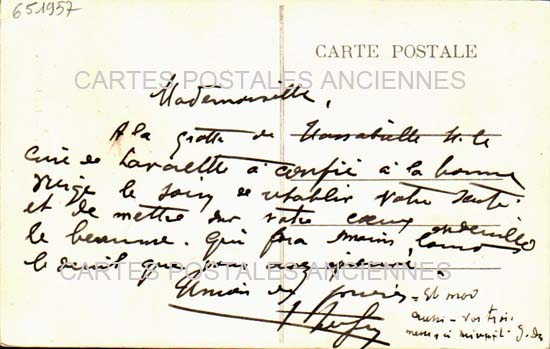 651957
CARTE POSTALE
CARTES POSTALES ANCIENNES
Mademoiselle,
A la grotte de Massabielle M. le
Curé de Lavalette a confié à la bonne
Vierge le soin de rétablir votre santé
et de mettre sur votre cœur endeuillé
le beaume. qui fera moins lourd
le deuil que vous avez
CARTES POSTALES ANCIENNES
Union de prières - Et moi
aussi - vos trois
messes à